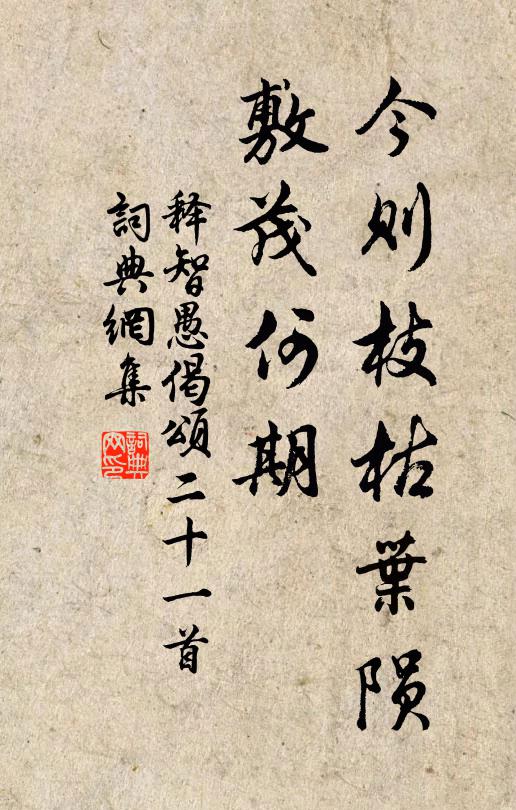 今则枝枯葉陨
敷茂何期
释智愚偈頌二十一首
詞典網集
詞典网印